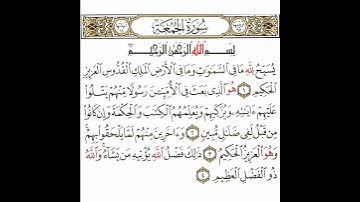 سُورَةُ الجُمُعَةِ
بِسْمِ اللَّهِ الرَّحْمَٰنِ الرَّحِيمِ
يُسَبِّحُ لِلَّهِ مَا فِي السَّمَٰوَٰتِ وَمَا فِي الْأَرْضِ الْمَلِكِ الْقُدُّوسِ الْعَزِيزِ
الْحَكِيمِ ١ هُوَ الَّذِي بَعَثَ فِي الْأُمِّيِّينَ رَسُولًا مِّنْهُمْ يَتْلُوا
عَلَيْهِمْ ءَايَٰتِهِ وَيُزَكِّيهِمْ وَيُعَلِّمُهُمُ الْكِتَٰبَ وَالْحِكْمَةَ وَإِن كَانُوا
مِن قَبْلُ لَفِي ضَلَٰلٍ مُّبِينٍ ٢ وَءَاخَرِينَ مِنْهُمْ لَمَّا يَلْحَقُوا بِهِمْ
وَهُوَ الْعَزِيزُ الْحَكِيمُ ٣ ذَٰلِكَ فَضْلُ اللَّهِ يُؤْتِيهِ مَن يَشَاءُ وَاللَّهُ
ذُو الْفَضْلِ الْعَظِيمِ ٤